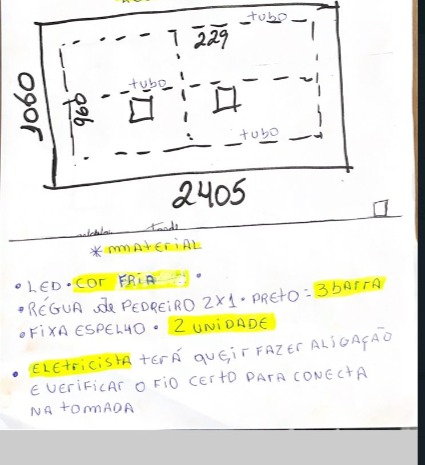 tubo
229
tubo
1060
960
tubo
2405
* MMATERIAL
• LED • COT FRIA •
• RÉGUA de PEDREIRO 2X1 • PRETO = 3 bARRA
• FIXA ESPELHO • 2 UNIDADE
• ELETRICISTA TERÁ QUEIR FAZER ALIGAÇÃO
E VERIFICAR O FIO CERTO PARA CONECTA
NA TOMADA